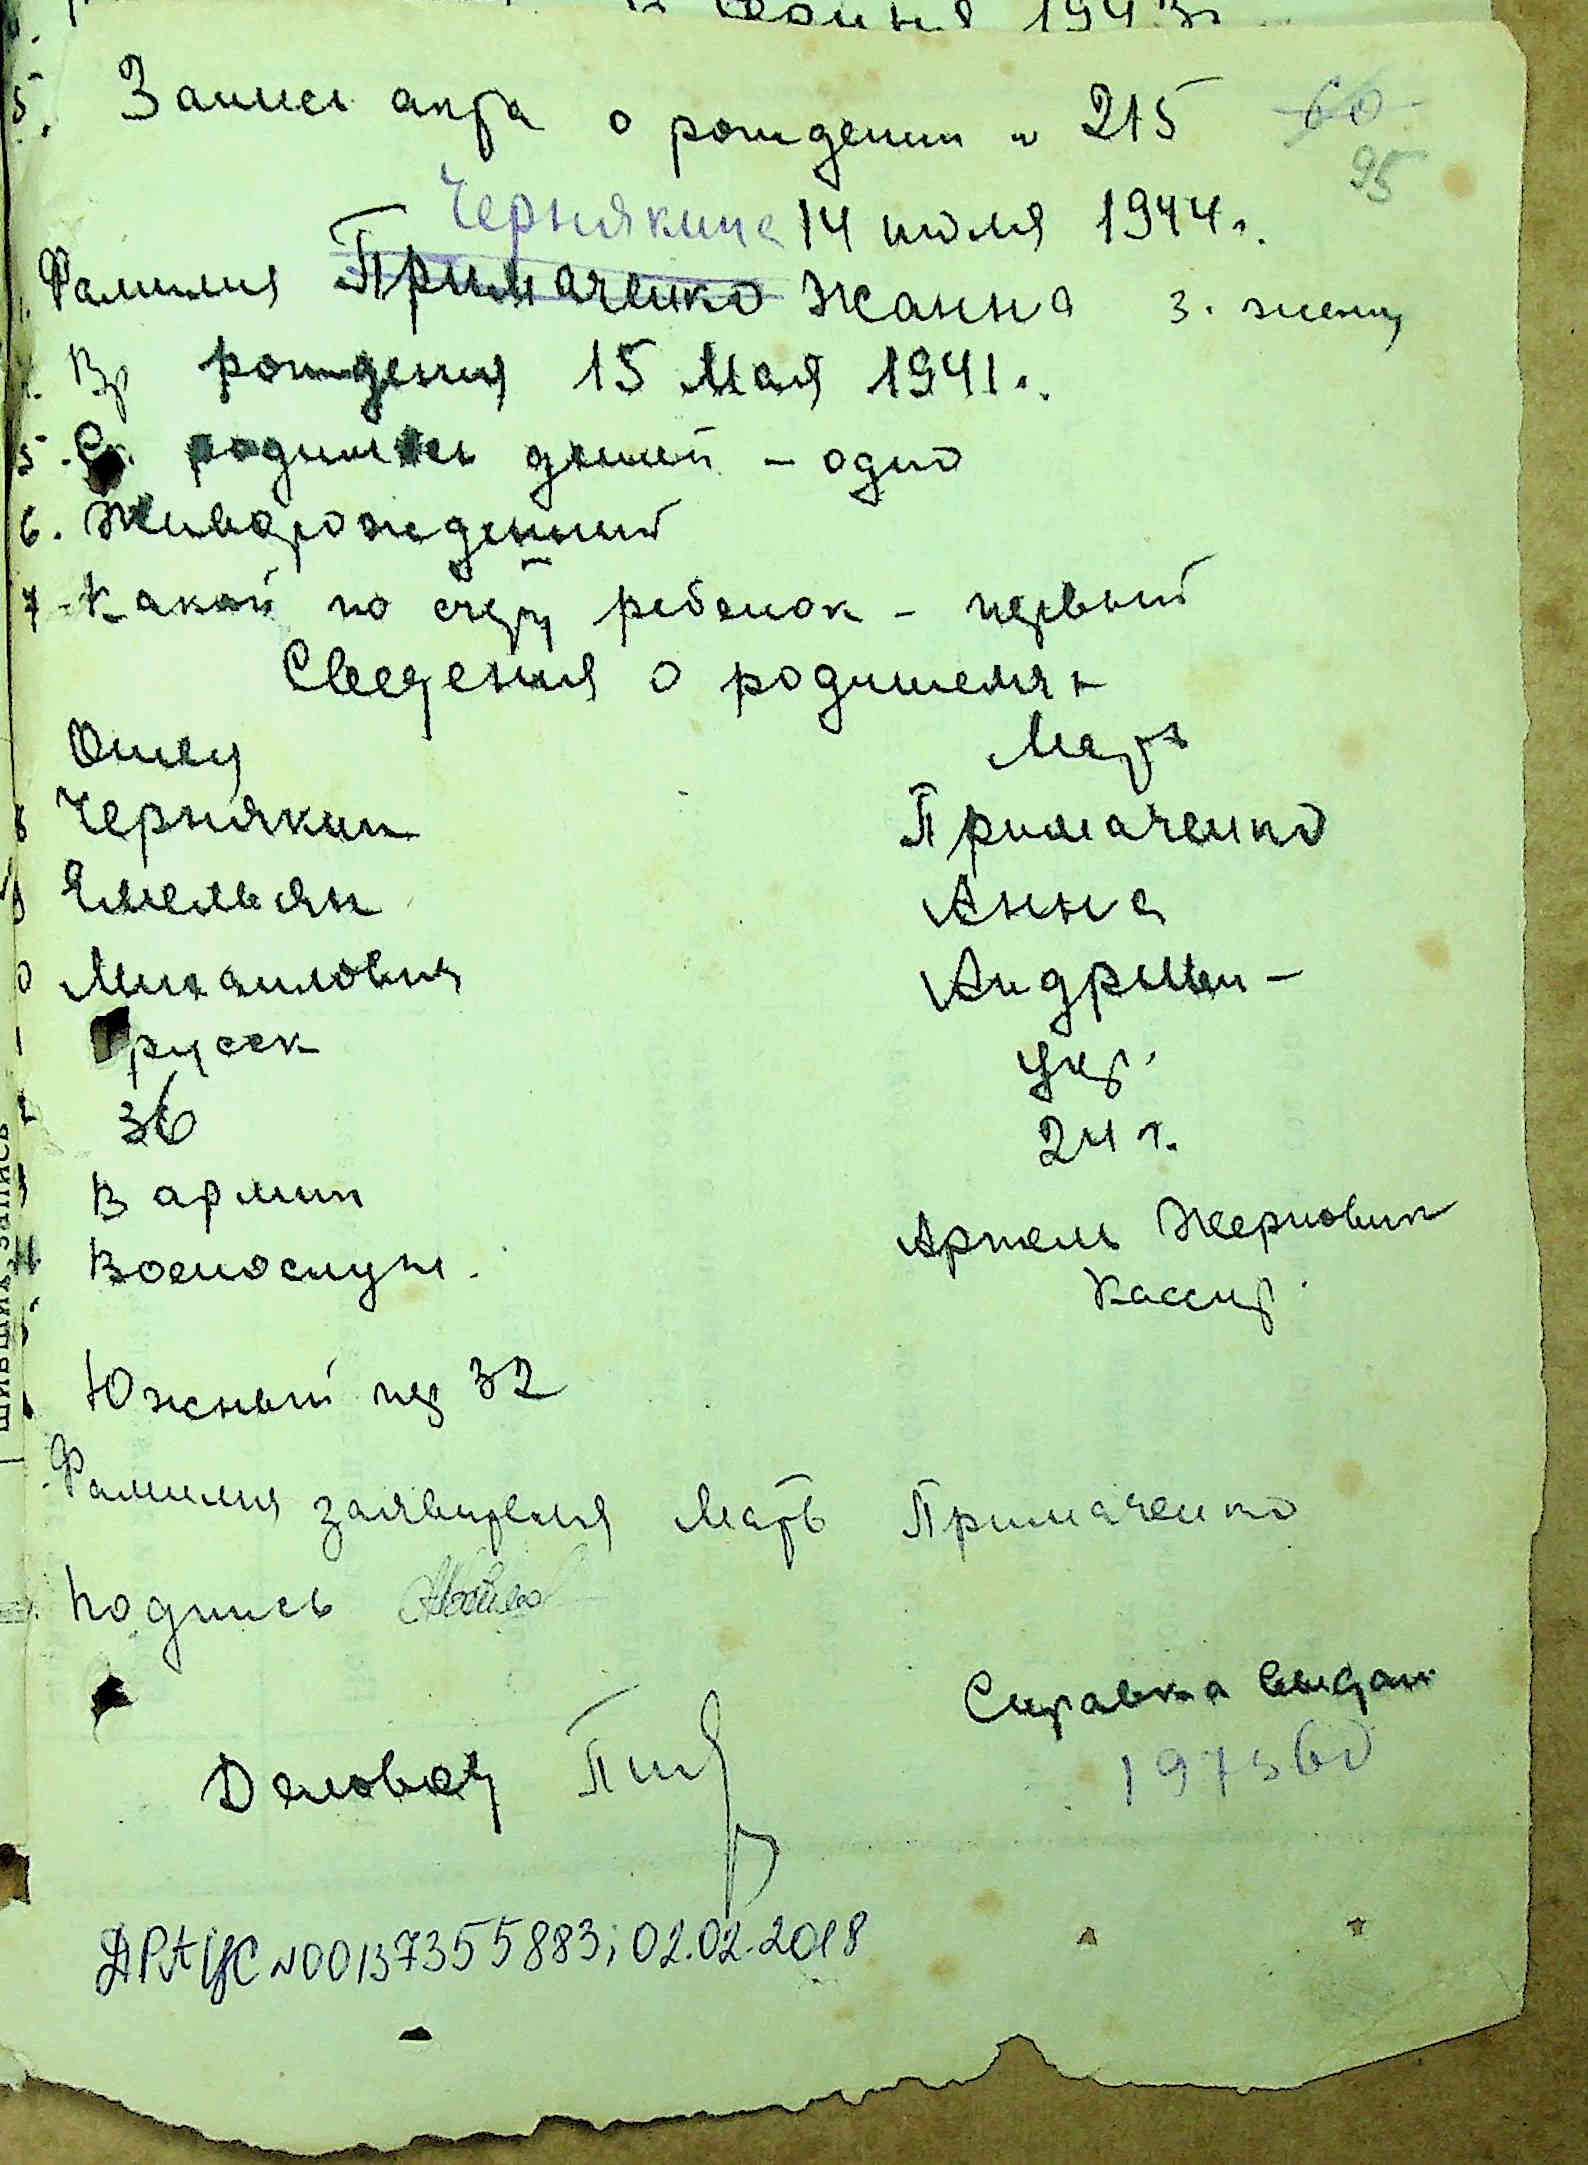 июня 1943г
5.
Запись акта о рождении № 215 60
95
Чернякина 14 июля 1944г.
Фамилия Примаченко Жанна 3. женщ
Вр рождения 15 Мая 1941г.
5. Ск. родилось детей - одно
6. Живорожденный
7. Какой по счету ребенок - первый
Сведения о родителях
Отец Мать
Чернякин Примаченко
Емельян Анна
Михаилович Андреев-
русск укр.
36 24 г.
В армии Артель Жерновик
Военослуж. Кассир.
Южный пер 32
Фамилия заявителя Мать Примаченко
Подпись
Справка выдан
197360
Деловод
ДРАЦС №00137355883; 02.02.2018